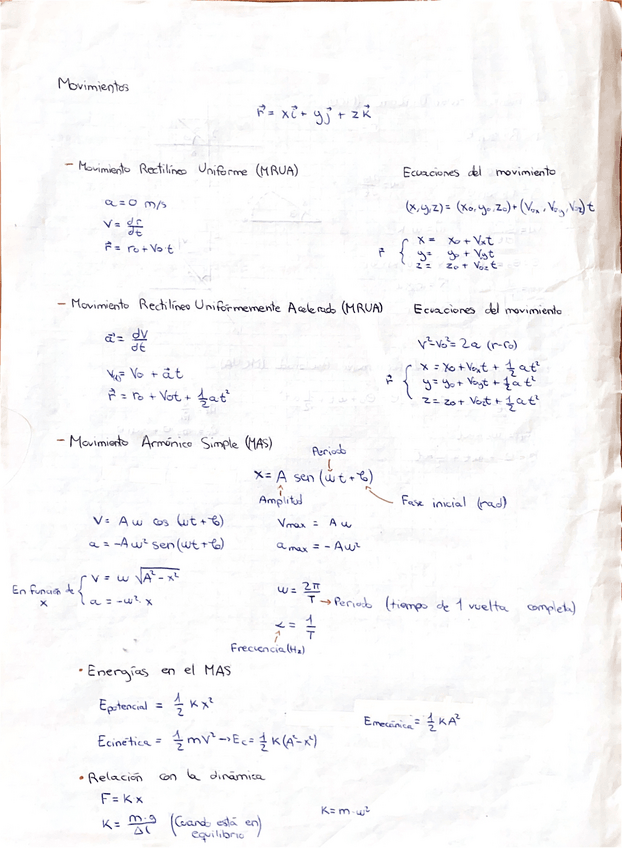 Movimientos
r⃗ = xi⃗ + yj⃗ + zk⃗
- Movimiento Rectilíneo Uniforme (MRUA)
Ecuaciones del movimiento
a=0 m/s
V = dr/dt
r⃗ = r₀ + V₀·t
(x,y,z) = (x₀,y₀,z₀)+(V₀ₓ, V₀y, V₀z) t
r⃗ { x = x₀ + Vₓt
y = y₀ + Vyt
z = z₀ + V₀zt
- Movimiento Rectilíneo Uniformemente Acelerado (MRUA)
Ecuaciones del movimiento
a⃗ = dV/dt
V(t) = V₀ + a⃗t
r⃗ = r₀ + V₀t + 1/2 at²
V²-V₀² = 2a (r-r₀)
r⃗ { x = x₀ + V₀ₓt + 1/2 at²
y = y₀ + V₀yt + 1/2 at²
z = z₀ + V₀zt + 1/2 at²
- Movimiento Armónico Simple (MAS)
Periodo
x = A sen (ωt + φ)
Amplitud
Fase inicial (rad)
V = Aω cos (ωt + φ)
Vmax = Aω
a = -Aω² sen(ωt + φ)
a max = -Aω²
En función de x { V = ω √A²-x²
a = -ω²·x
ω = 2π/T → Periodo (tiempo de 1 vuelta completa)
= 1/T
Frecuencia (Hz)
• Energías en el MAS
Epotencial = 1/2 Kx²
Emecánica = 1/2 KA²
Ecinética = 1/2 mV² → Ec = 1/2 K(A²-x²)
• Relación con la dinámica
F = Kx
K = m·g/Δl (Cuando está en equilibrio)
K = m·ω²